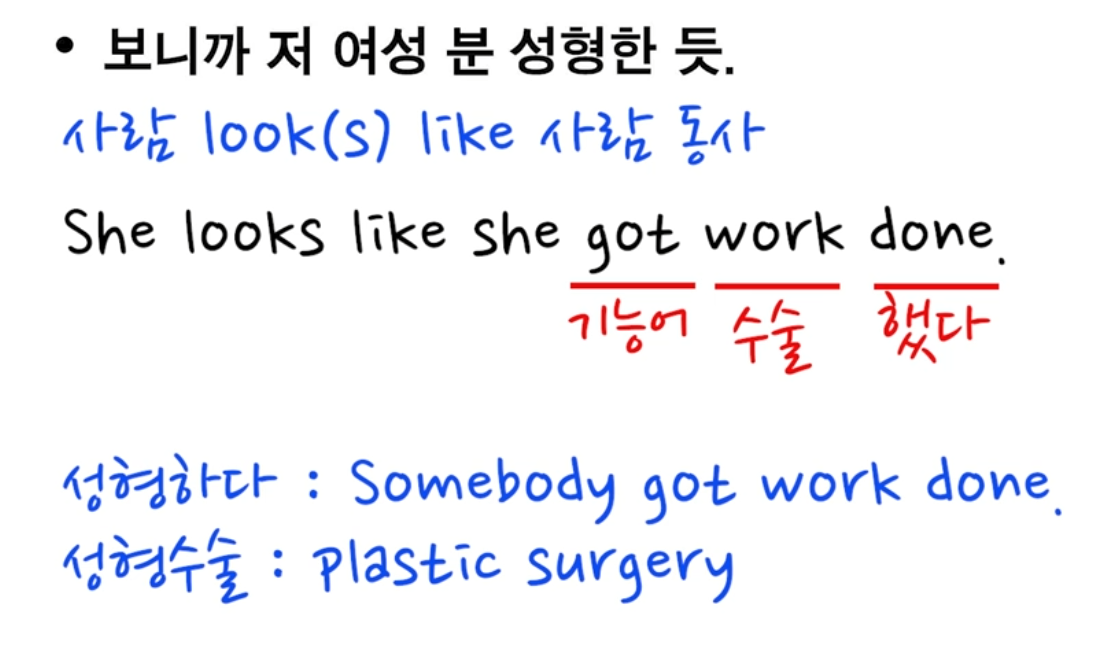 • 보니까 저 여성 분 성형한 듯.
사람 look(s) like 사람 동사
She looks like she got work done.
기능어 수술 했다
성형하다 : Somebody got work done.
성형수술 : plastic surgery